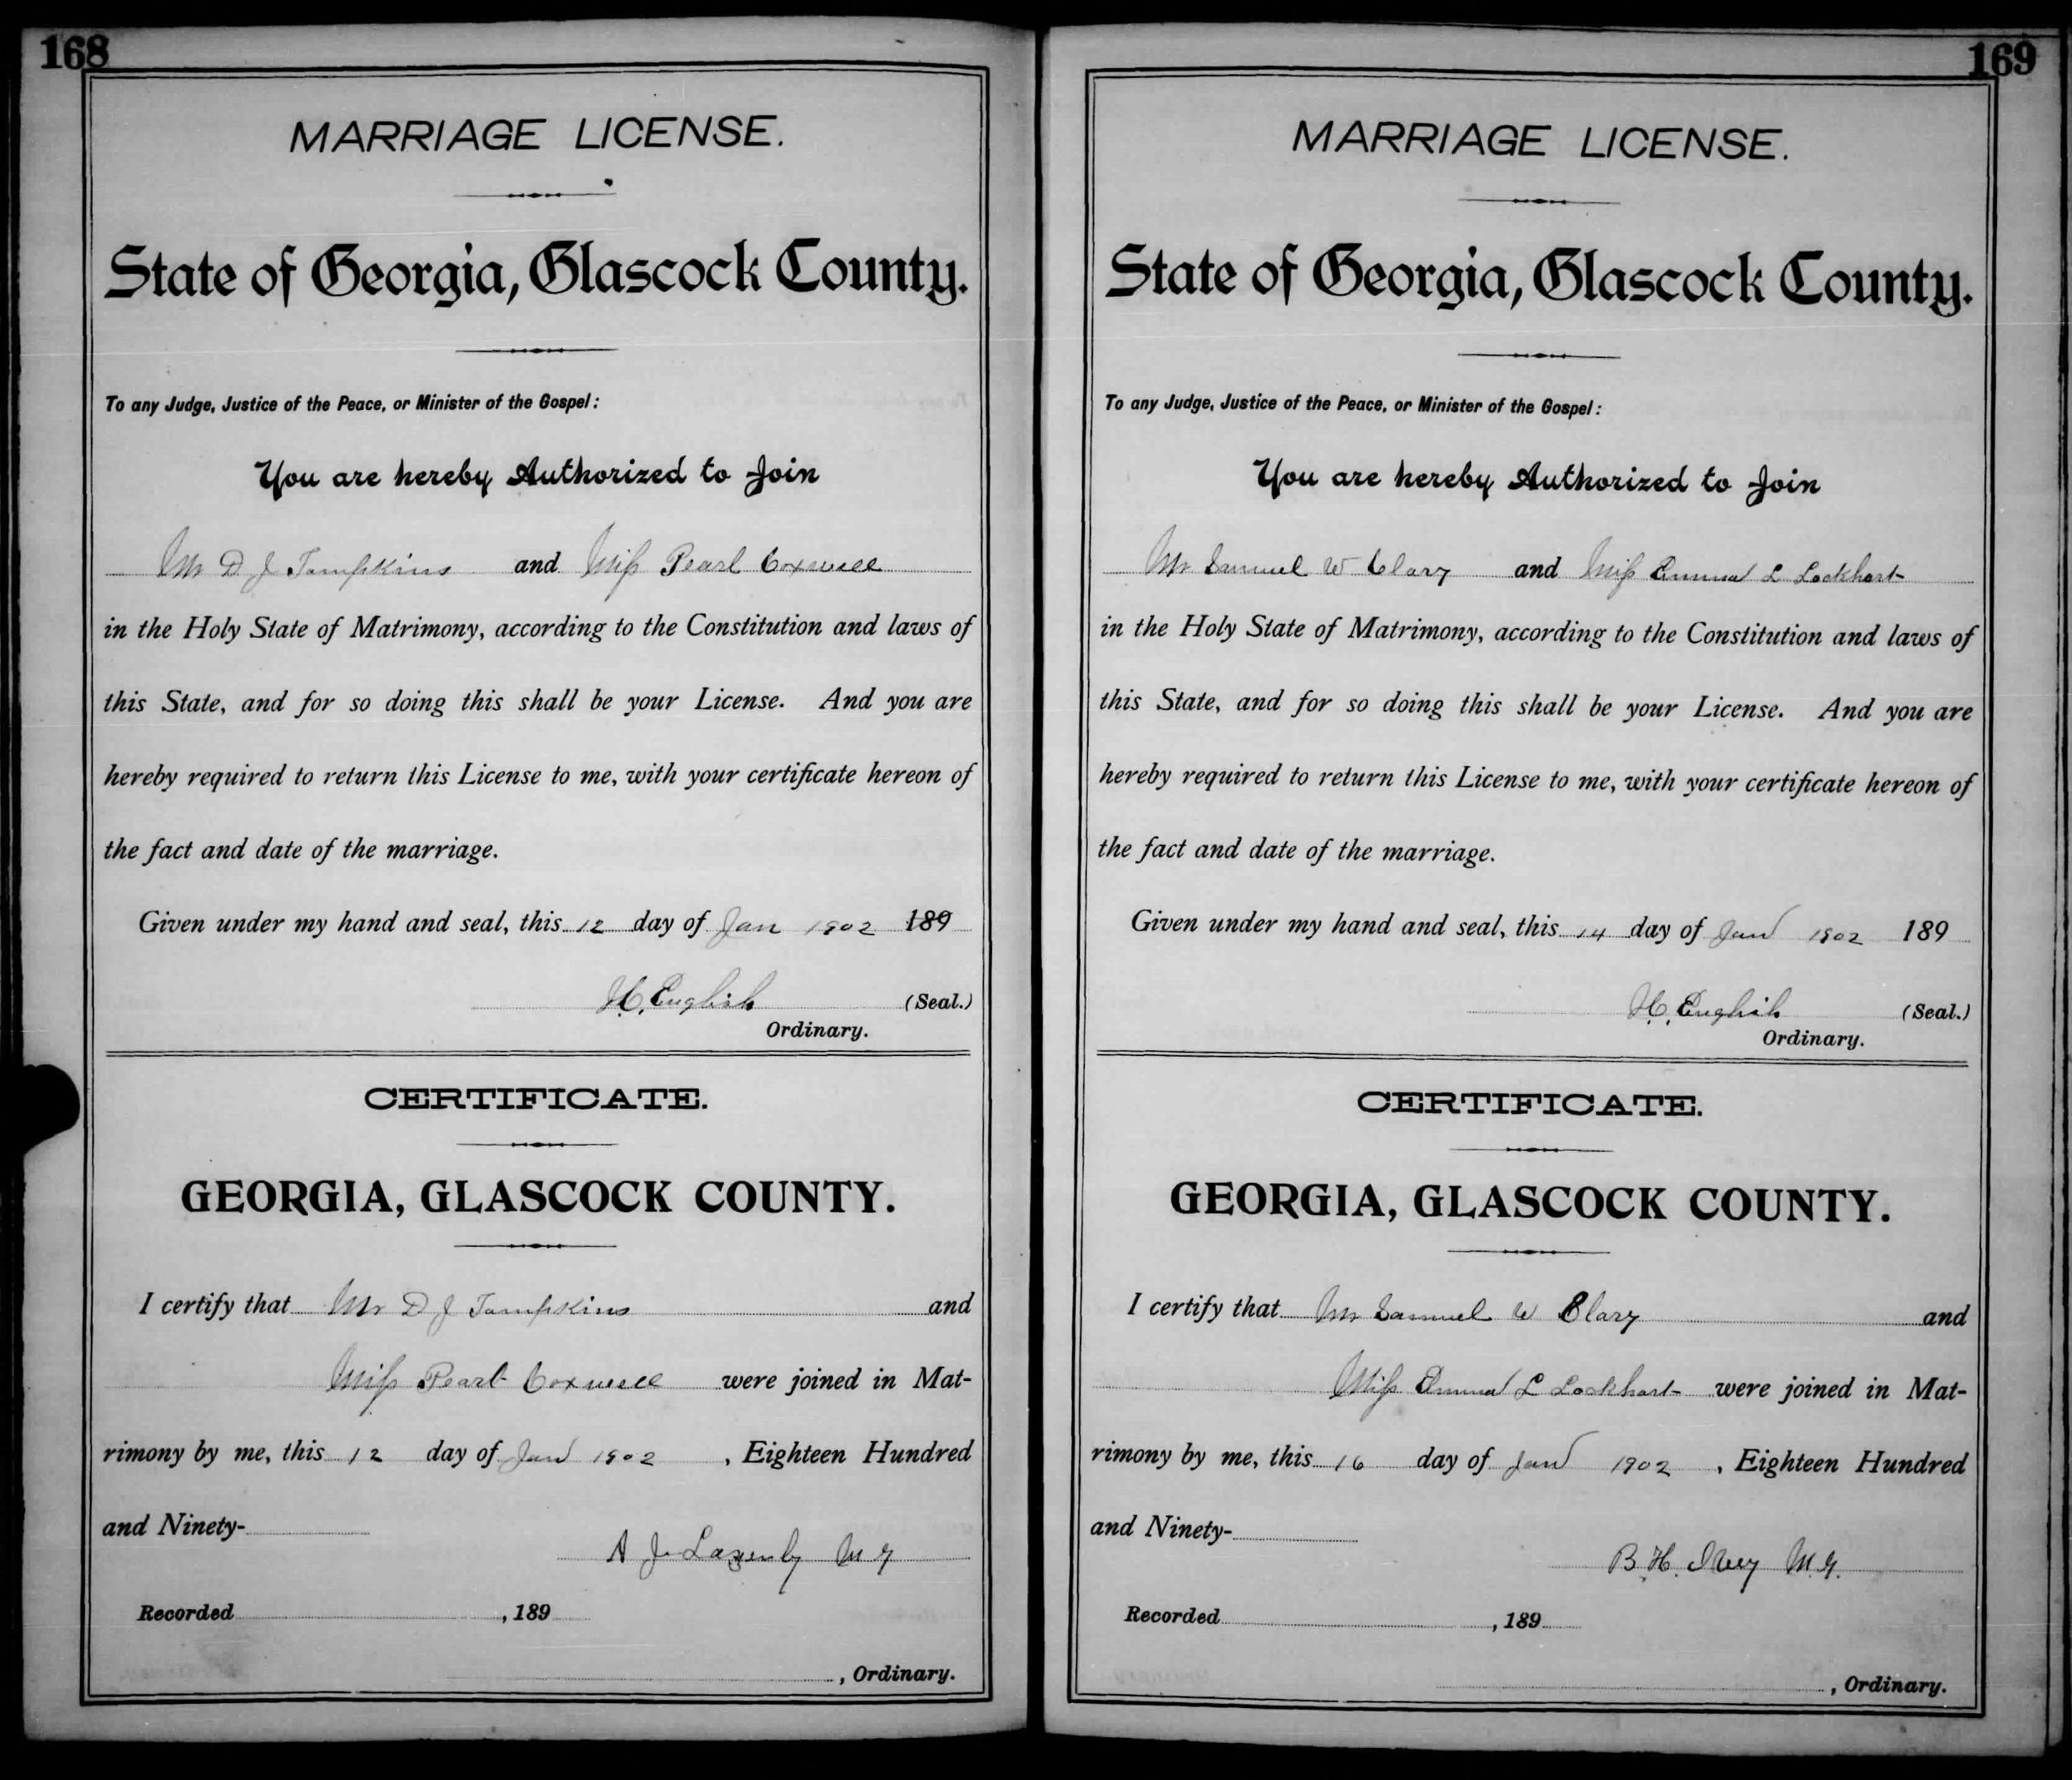 168
MARRIAGE LICENSE.
State of Georgia, Glascock County.
To any Judge, Justice of the Peace, or Minister of the Gospel:
You are hereby Authorized to Join
Mr D J Tompkins and Miss Pearl Coxwell
in the Holy State of Matrimony, according to the Constitution and laws of
this State, and for so doing this shall be your License. And you are
hereby required to return this License to me, with your certificate hereon of
the fact and date of the marriage.
Given under my hand and seal, this 12 day of Jan 1902 189
H. English (Seal.)
Ordinary.
CERTIFICATE.
GEORGIA, GLASCOCK COUNTY.
I certify that Mr D J Tompkins and
Miss Pearl Coxwell were joined in Mat-
rimony by me, this 12 day of Jan 1902, Eighteen Hundred
and Ninety-
A J Lazenby M G
Recorded , 189
, Ordinary.
169
MARRIAGE LICENSE.
State of Georgia, Glascock County.
To any Judge, Justice of the Peace, or Minister of the Gospel:
You are hereby Authorized to Join
Mr Samuel W Clary and Miss Emma L Lockhart
in the Holy State of Matrimony, according to the Constitution and laws of
this State, and for so doing this shall be your License. And you are
hereby required to return this License to me, with your certificate hereon of
the fact and date of the marriage.
Given under my hand and seal, this 14 day of Jan 1902 189
H. English (Seal.)
Ordinary.
CERTIFICATE.
GEORGIA, GLASCOCK COUNTY.
I certify that Mr Samuel W Clary and
Miss Emma L Lockhart were joined in Mat-
rimony by me, this 16 day of Jan 1902, Eighteen Hundred
and Ninety-
B. H. Ivey M. G.
Recorded , 189
, Ordinary.